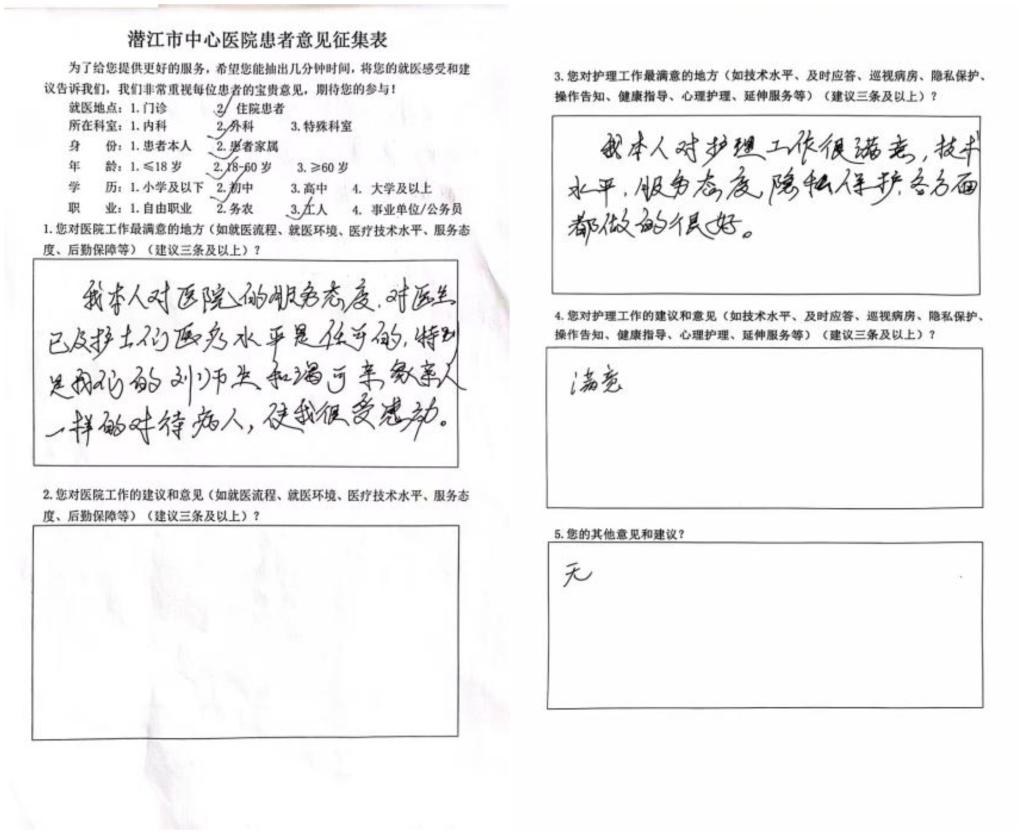 潜江市中心医院患者意见征集表
为了给您提供更好的服务，希望您能抽出几分钟时间，将您的就医感受和建
议告诉我们，我们非常重视每位患者的宝贵意见，期待您的参与！
就医地点：1.门诊 2.住院患者
所在科室：1.内科 2.外科 3.特殊科室
身 份：1.患者本人 2.患者家属
年 龄：1.≤18岁 2.18-60岁 3.≥60岁
学 历：1.小学及以下 2.初中 3.高中 4. 大学及以上
职 业：1.自由职业 2.务农 3.工人 4. 事业单位/公务员
1.您对医院工作最满意的地方（如就医流程、就医环境、医疗技术水平、服务态
度、后勤保障等）（建议三条及以上）？
我本人对医院的服务态度，对医生
已及护士们医疗水平是认可的，特别
是我们的刘
一样的对待病人，使我很受感动。
2.您对医院工作的建议和意见（如就医流程、就医环境、医疗技术水平、服务态
度、后勤保障等）（建议三条及以上）？
3.您对护理工作最满意的地方（如技术水平、及时应答、巡视病房、隐私保护、
操作告知、健康指导、心理护理、延伸服务等）（建议三条及以上）？
我本人对护理工作很满意，技术
水平，服务态度，隐私保护，各方面
都做的很好。
4.您对护理工作的建议和意见（如技术水平、及时应答、巡视病房、隐私保护、
操作告知、健康指导、心理护理、延伸服务等）（建议三条及以上）？
满意
5.您的其他意见和建议？
无